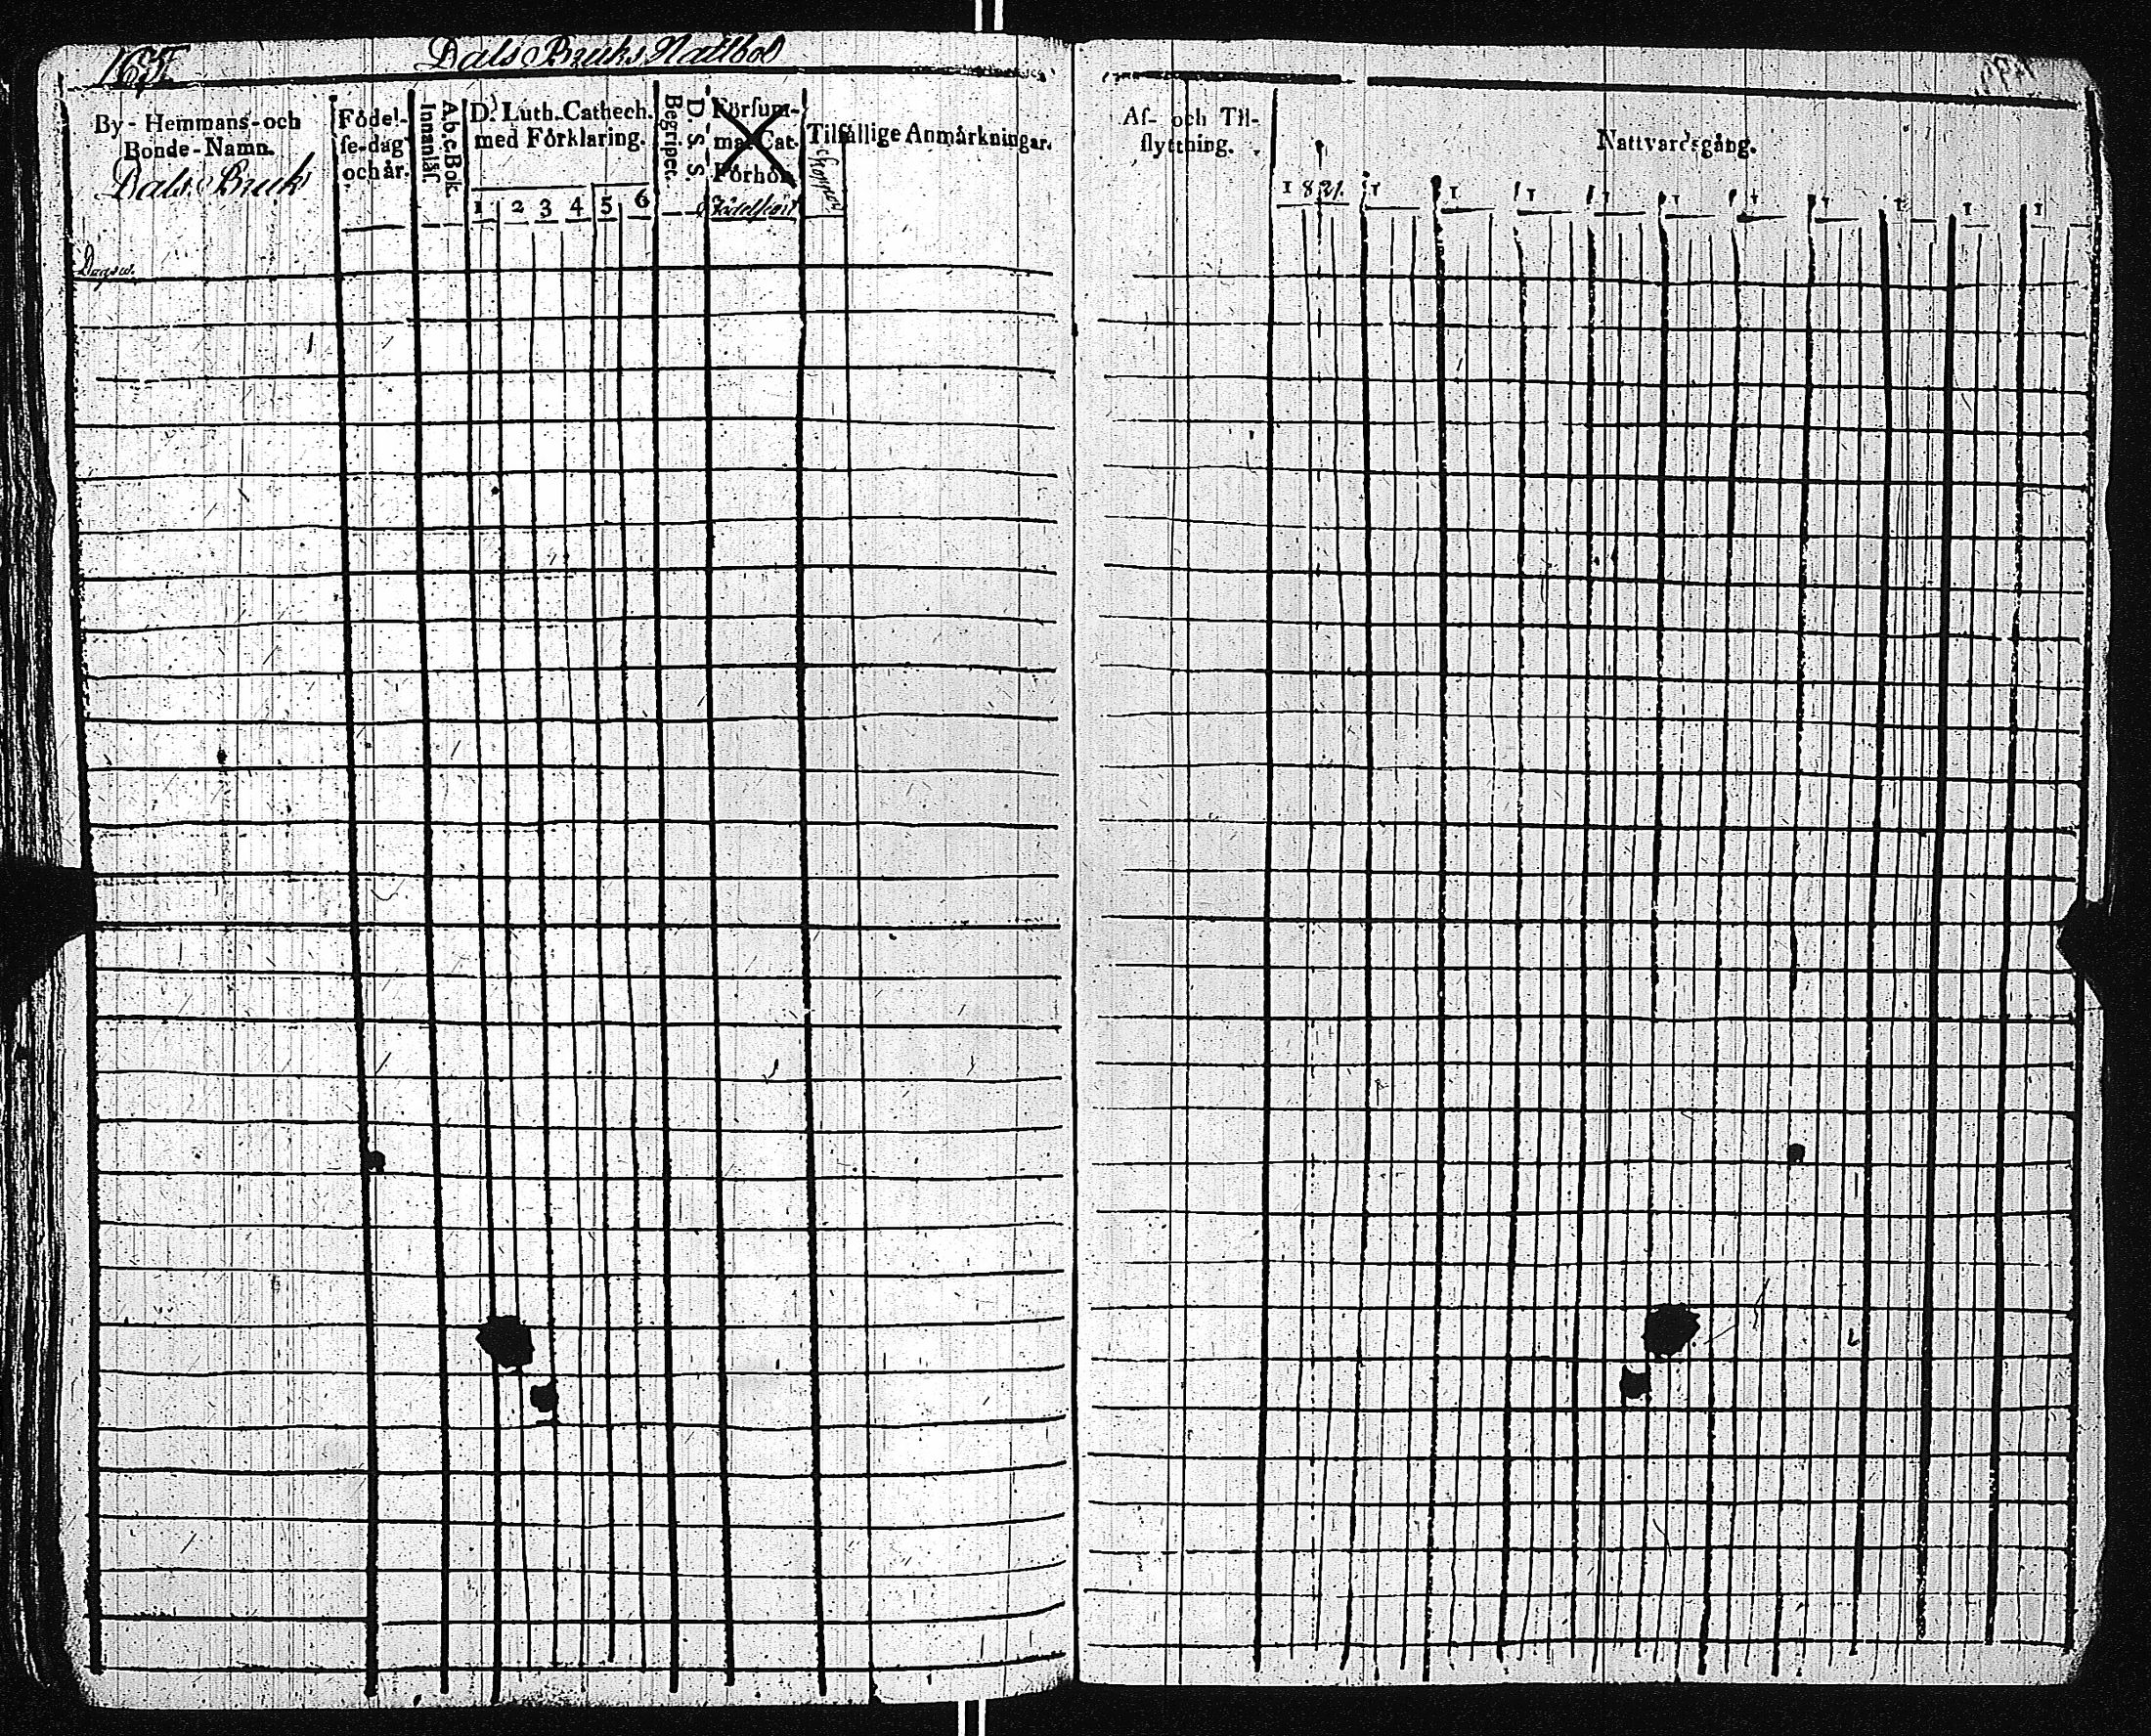 165. Dals Bruks Nattbol
By- Hemmans-och
Bonde-Namn.
Dals Bruk
Födel-
se-dag
och år.
A.b.c.Bok.
Innanläs.
D. Luth. Cathech.
med Förklaring.
1 2 3 4 5 6
D. S. S.
Begripet.
Försum-
mat Cat.
Förhör.
Födelseort
Tilfällige Anmärkningar.
Dagsw.
Af- och Til-
flyttning.
Nattvardsgång.
1821. 1 1 1 1 1 1 1 1 1 1